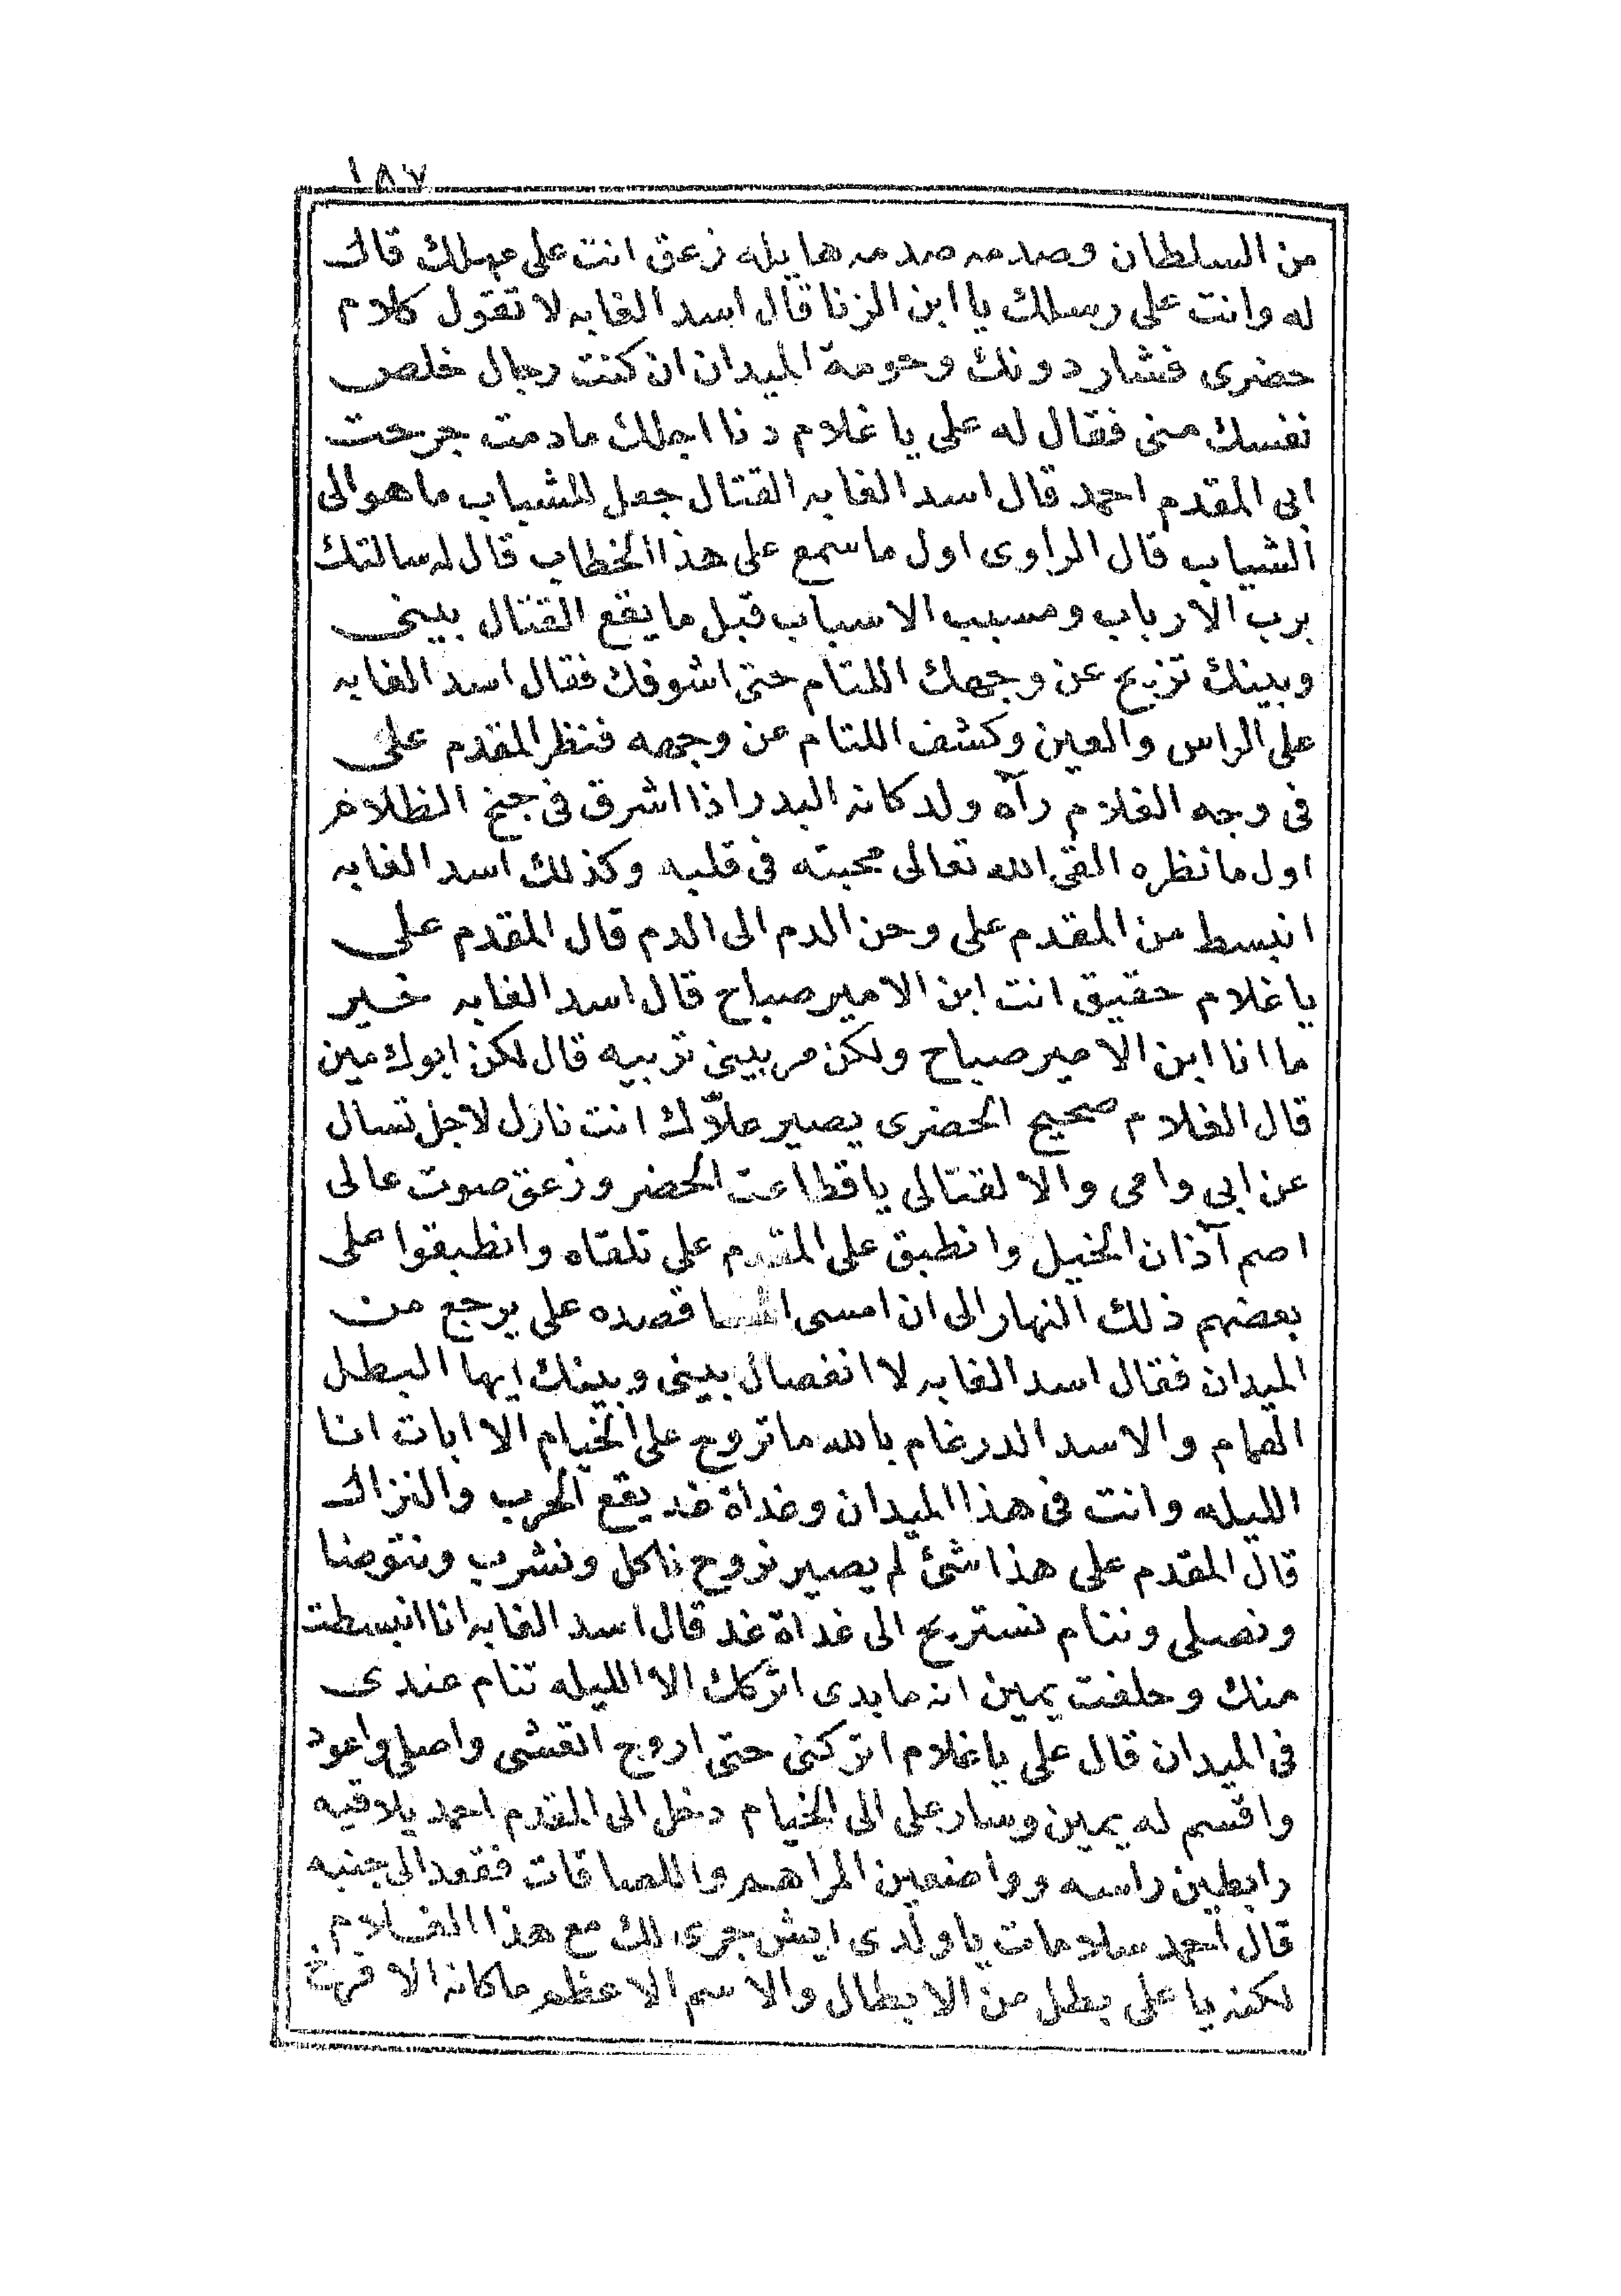 ١٨٧
من السلطان وصدمه صدمه هايله زعق انت على مهلك قال
له وانت على رسلك يا ابن الزنا قال اسد الغابه لا تقول كلام
حضرى فشار دونك وحومة الميدان ان كنت رجال خلص
نفسك منى فقال له على يا غلام دنا اجلك مادمت جرحت
ابى المقدم احمد قال اسد الغابه القتال جعل للشباب ما هو الى
الشياب قال الراوى اول ما سمع على هذا الخطاب قال له سالتك
برب الارباب ومسبب الاسباب قبل ما يقع القتال بينى
وبينك تزيح عن وجهك اللتام حتى اشوفك فقال اسد الغابه
على الراس والعين وكشف اللتام عن وجهه فنظر المقدم على
فى وجه الغلام رآه ولد كانه البدر اذا اشرق فى جنح الظلام
اول ما نظره القى الله تعالى محبته فى قلبه وكذلك اسد الغابه
انبسط من المقدم على وحن الدم الى الدم قال المقدم على
يا غلام حقيق انت ابن الامير صباح قال اسد الغابه خير
ما انا ابن الامير صباح ولكن مربينى تربيه قال لكن ابوك مين
قال الغلام صحيح الحضرى يصير علاّك انت نازل لاجل تسال
عن ابى وامى والا لقتالى يا قطاعت الحضر وزعق صوت عالى
اصم آذان الخيل وانطبق على المقدم على تلقاه وانطبقوا على
بعضهم ذلك النهار الى ان امسى المسا قصده على يرجع من
الميدان فقال اسد الغابه لا انفصال بينى وبينك ايها البطل
الهمام والاسد الدرغام بالله ما تروح على الخيام الا ابات انا
الليله وانت فى هذا الميدان وغداة غد يقع الحرب والنزال
قال المقدم على هذا شئ لم يصير نروح ناكل ونشرب ونتوضا
ونصلى وننام نستريح الى غداة غد قال اسد الغابه انا انبسطت
منك وحلفت يمين انه ما بدى اتركك الا الليله تنام عندى
فى الميدان قال على يا غلام اتركنى حتى اروح اتعشى واصلى واعود
واقسم له يمين وسار على الى الخيام دخل الى المقدم احمد يلاقيه
رابطين راسه وواضعين المراهم واللصاقات فقعد الى جنبه
قال احمد سلامات يا ولدى ايش جرى لك مع هذا الغلام
لكنه يا على بطل من الابطال والاسم الاعظم ما كانه الا فرخ